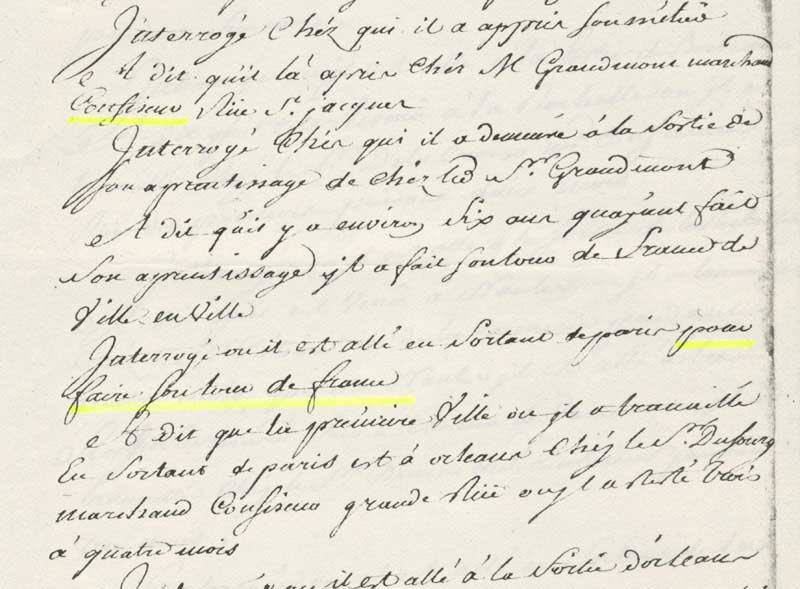 Interrogé Chéz qui il a appris son métier
et dit quil la apris Chéz M Grandmont marchand
Confiseur Rüe St. jacques
Interrogé Chéz qui il a demeuré à la Sortie de
Son aprentissage de Chéz led Sr. Grandmont
et dit quil y a environ Six ans quayant fait
Son aprentissage yl a fait Son tour de france de
Ville en Ville
Interrogé ou il est allé en Sortant de paris pour
faire Son tour de france
et dit que la première Ville ou yl a travaillé
En Sortant de paris est à orleans Chéz le Sr. Dufourg
marchand Confiseur grande Rüe ou yl a resté trois
à quatre mois
ou il est allé à la Sortie d'orleans